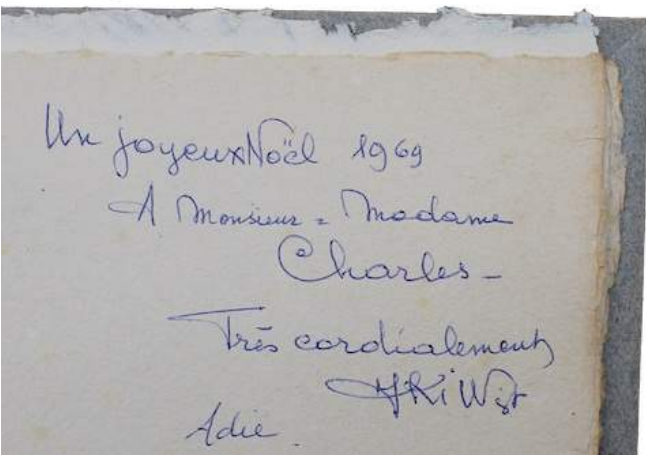 Un joyeux Noël 1969
A Monsieur = Madame
Charles -
Très cordialement
Adie.